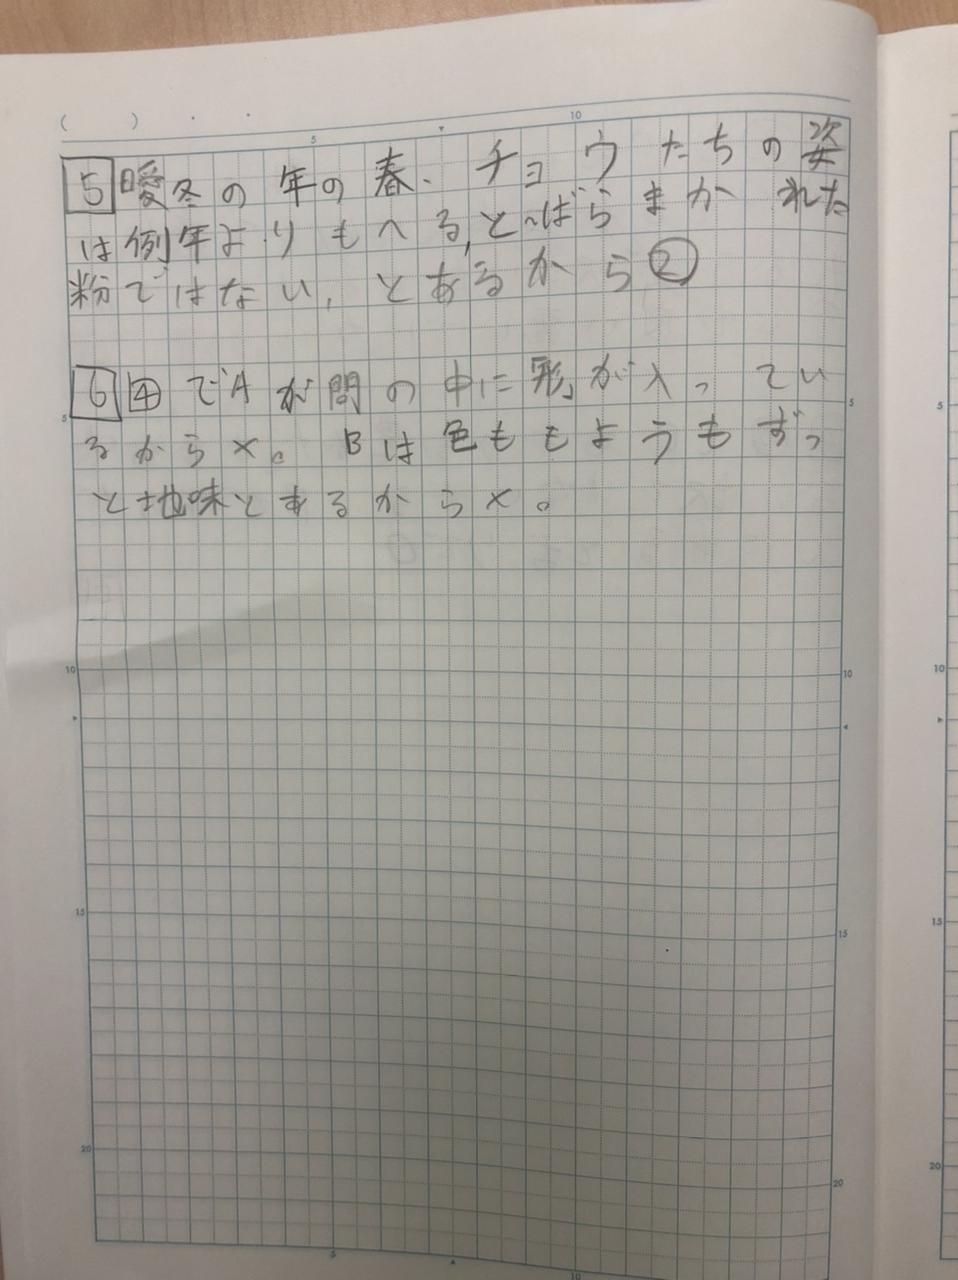 ( )
5 10
5 暖冬の年の春、チョウたちの姿
は例年よりもへる,とばらまかれた
粉ではない,とあるから②
6 4 でAが問の中に形が入ってい
るから×。Bは色ももようもずっ
と地味とあるから×。
5 5 5
10 10 10
15 15 15
20 20 20
5 10